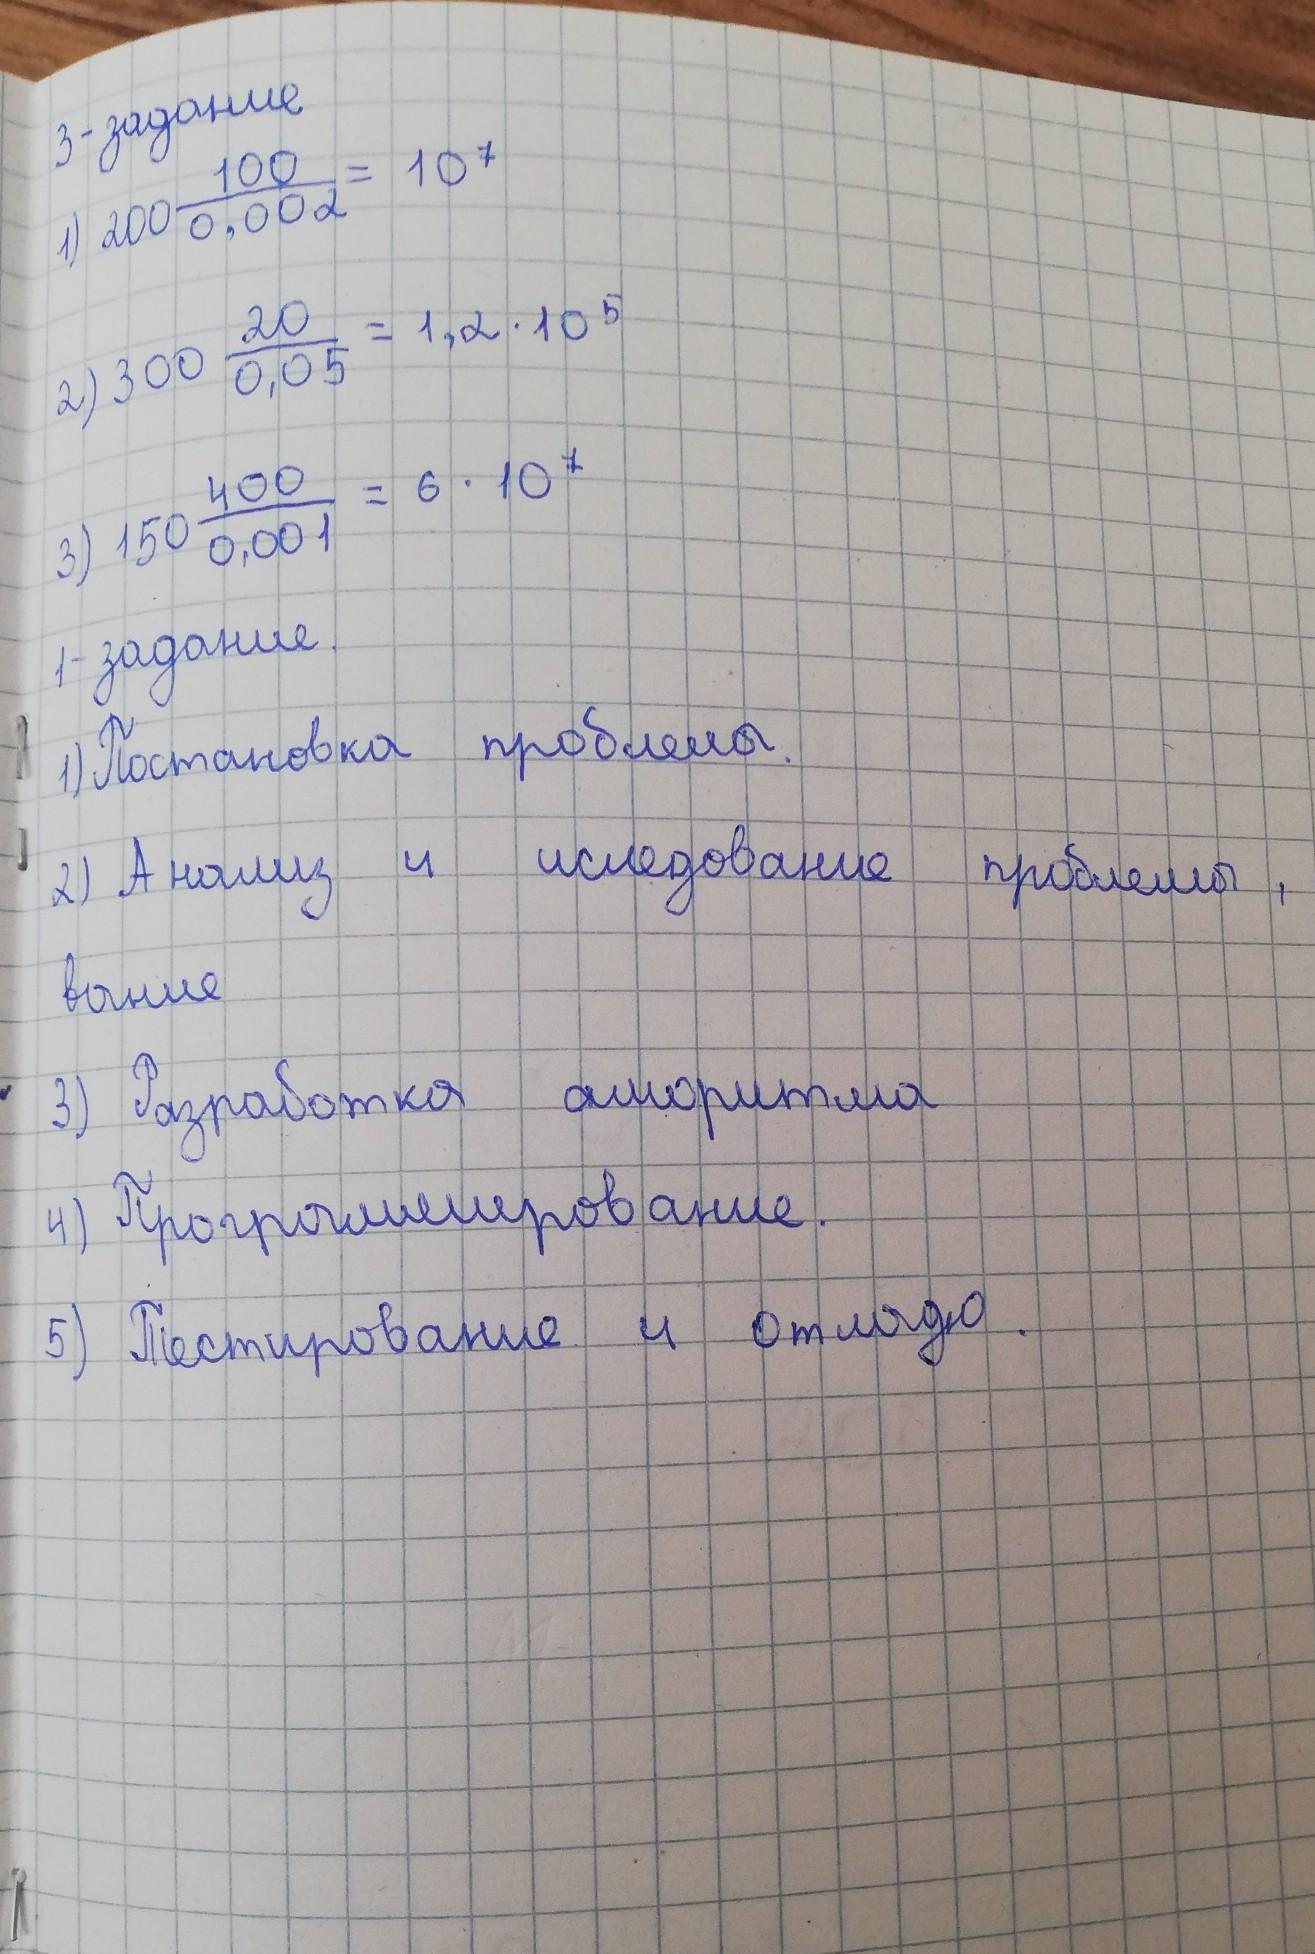 3-задание
1) 200 100/0,002 = 10⁷
2) 300 20/0,05 = 1,2 · 10⁵
3) 150 400/0,001 = 6 · 10⁷
1-задание.
1) Постановка проблемы.
2) Анализ и иследование проблемы,
вание
3) Разработка алгоритма
4) Программирование.
5) Тестирование и отладю.